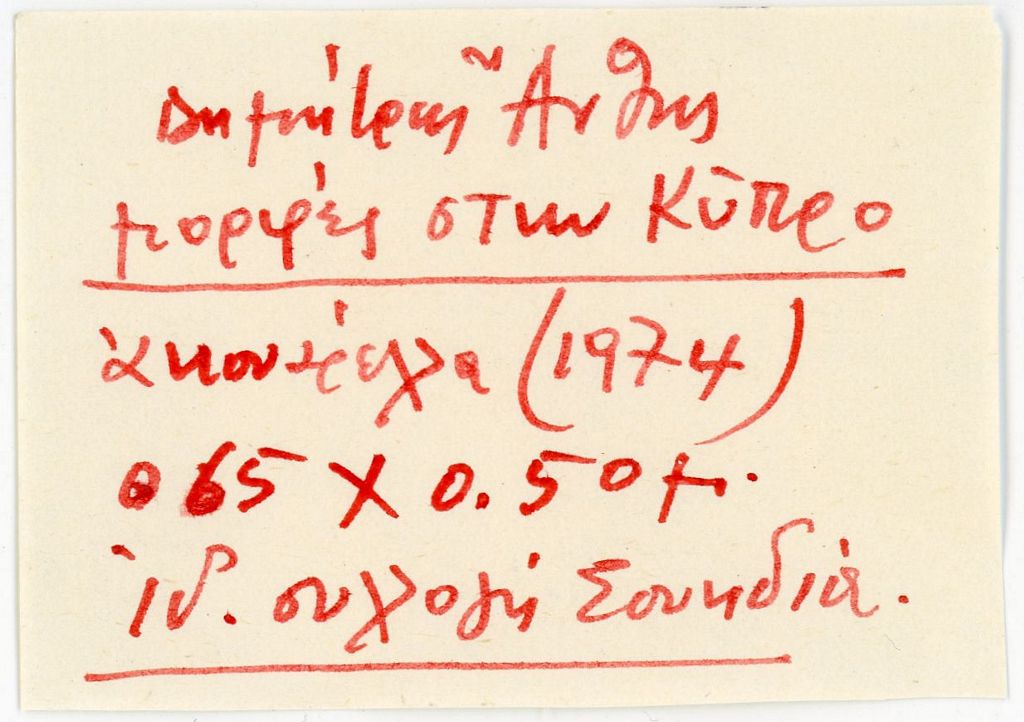 Δημήτρης Ἄνθης
μορφές στην Κύπρο
ἀκουαρέλλα (1974)
0 65 X 0.50 μ.
ἰδ. συλλογή Σουηδία.